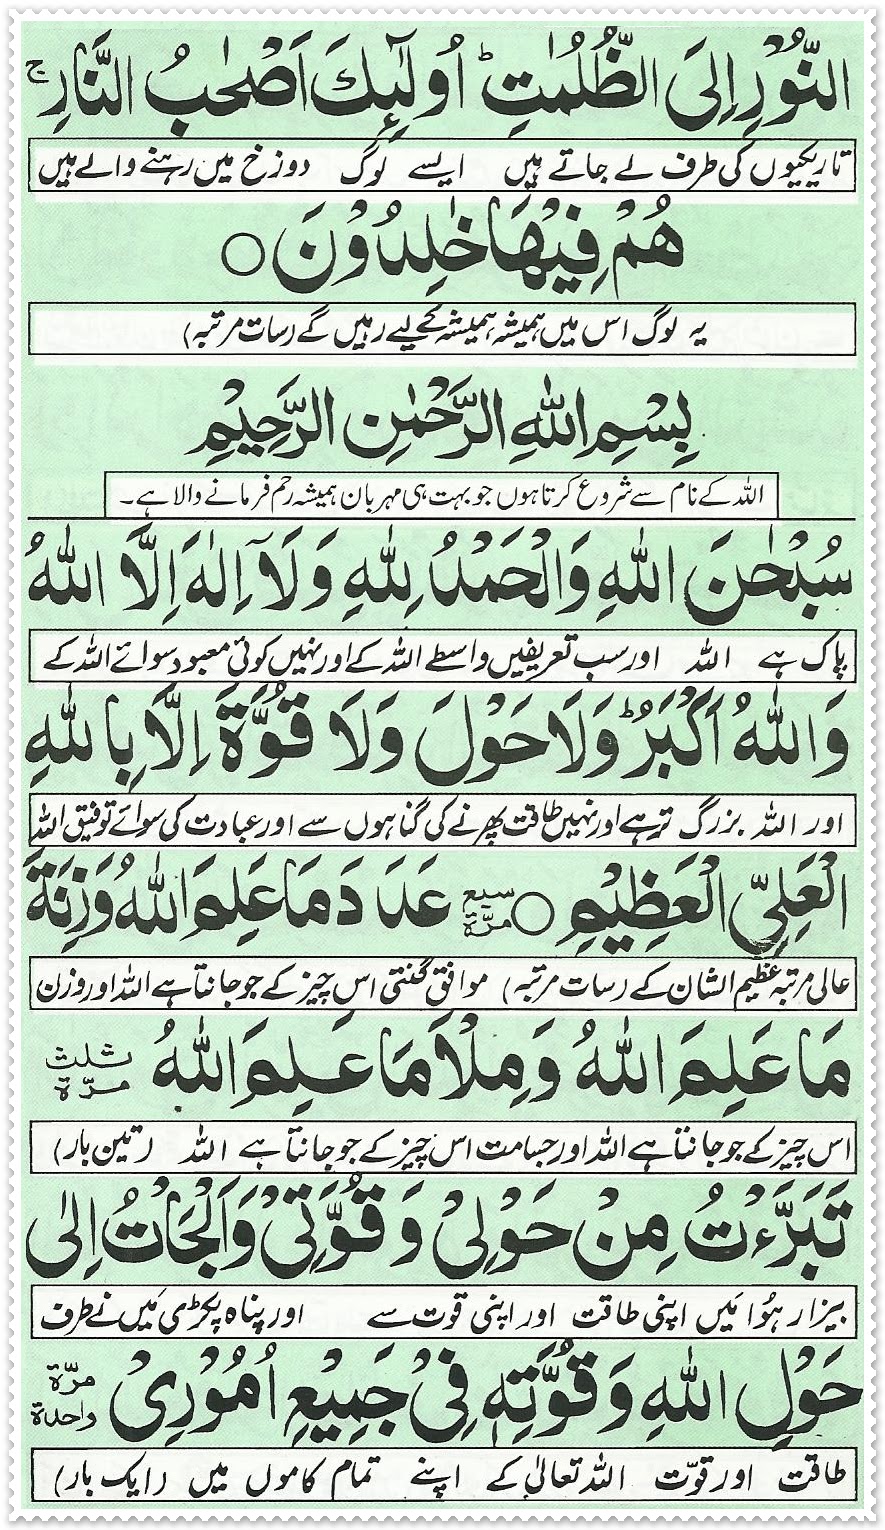 النُّوْرِ اِلَى الظُّلُمٰتِ ؕ اُولٰٓئِكَ اَصْحٰبُ النَّارِ ۚ
تاریکیوں کی طرف لے جاتے ہیں ایسے لوگ دوزخ میں رہنے والے ہیں
هُمْ فِيْهَا خٰلِدُوْنَ ○
یہ لوگ اس میں ہمیشہ ہمیشہ کے لیے رہیں گے (سات مرتبہ)
بِسْمِ اللهِ الرَّحْمٰنِ الرَّحِيْمِ
اللہ کے نام سے شروع کرتا ہوں جو بہت ہی مہربان ہمیشہ رحم فرمانے والا ہے۔
سُبْحٰنَ اللهِ وَالْحَمْدُ لِلّٰهِ وَلَآ اِلٰهَ اِلَّا اللهُ
پاک ہے اللہ اور سب تعریفیں واسطے اللہ کے اور نہیں کوئی معبود سوائے اللہ کے
وَاللهُ اَكْبَرُ ؕ وَلَا حَوْلَ وَلَا قُوَّةَ اِلَّا بِاللهِ
اور اللہ بزرگ تر ہے اور نہیں طاقت پھرنے کی گناہوں سے اور عبادت کی سوائے توفیق اللہ
الْعَلِيِّ الْعَظِيْمِ ○ سبع مرّة عَدَدَ مَا عَلِمَ اللهُ وَزِنَةَ
عالی مرتبہ عظیم الشان کے (سات مرتبہ) موافق گنتی اس چیز کے جو جانتا ہے اللہ اور وزن
مَا عَلِمَ اللهُ وَمِلْاَ مَا عَلِمَ اللهُ ثلث مرّة
اس چیز کے جو جانتا ہے اللہ اور جسامت اس چیز کے جو جانتا ہے اللہ (تین بار)
تَبَرَّءْتُ مِنْ حَوْلِيْ وَقُوَّتِيْ وَالْجَاْتُ اِلٰى
بیزار ہُوا مَیں اپنی طاقت اور اپنی قوت سے اور پناہ پکڑی مَیں نے طرف
حَوْلِ اللهِ وَقُوَّتِهٖ فِيْ جَمِيْعِ اُمُوْرِيْ مرّة واحدة
طاقت اور قوّت اللہ تعالیٰ کے اپنے تمام کاموں میں (ایک بار)